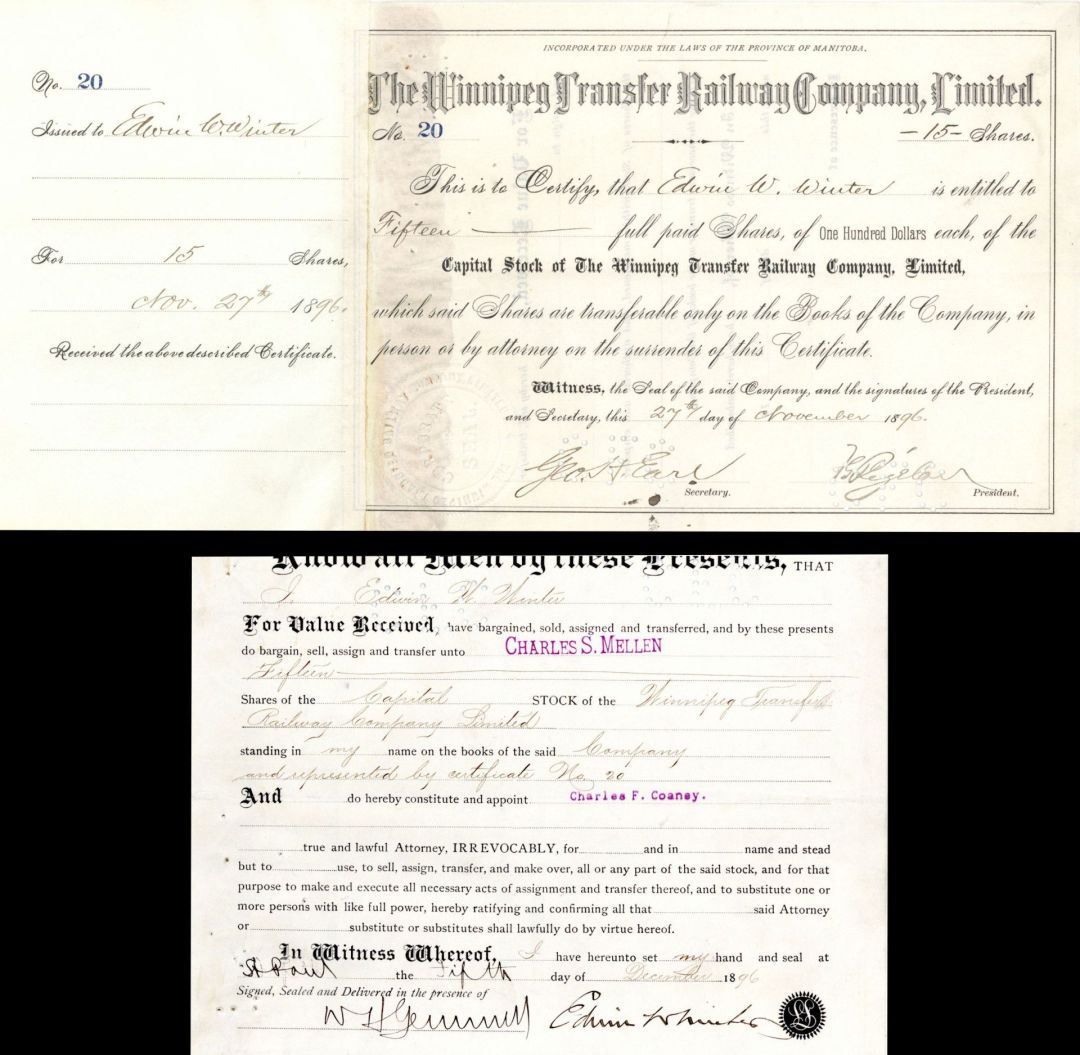 No. 20
Issued to Edwin W. Winter
For 15 Shares,
Nov. 27th 1896.
Received the above described Certificate.
INCORPORATED UNDER THE LAWS OF THE PROVINCE OF MANITOBA.
The Winnipeg Transfer Railway Company, Limited.
No. 20 -15- Shares.
This is to Certify, that Edwin W. Winter is entitled to
Fifteen full paid Shares, of One Hundred Dollars each, of the
Capital Stock of The Winnipeg Transfer Railway Company, Limited,
which said Shares are transferable only on the Books of the Company, in
person or by attorney on the surrender of this Certificate.
Witness, the Seal of the said Company, and the signatures of the President,
and Secretary, this 27th day of November 1896.
Geo. H. Earl
Secretary. President.
Know all Men by these Presents, THAT
I Edwin W. Winter
For Value Received, have bargained, sold, assigned and transferred, and by these presents
do bargain, sell, assign and transfer unto CHARLES S. MELLEN
Fifteen
Shares of the Capital STOCK of the Winnipeg Transfer
Railway Company Limited
standing in my name on the books of the said Company
and represented by certificate No. 20
And do hereby constitute and appoint Charles F. Coaney.
true and lawful Attorney, IRREVOCABLY, for and in name and stead
but to use, to sell, assign, transfer, and make over, all or any part of the said stock, and for that
purpose to make and execute all necessary acts of assignment and transfer thereof, and to substitute one or
more persons with like full power, hereby ratifying and confirming all that said Attorney
or substitute or substitutes shall lawfully do by virtue hereof.
In Witness Whereof, I have hereunto set my hand and seal at
St Paul the Fifth day of December 1896
Signed, Sealed and Delivered in the presence of
W H Gemmell Edwin W Winter
LS